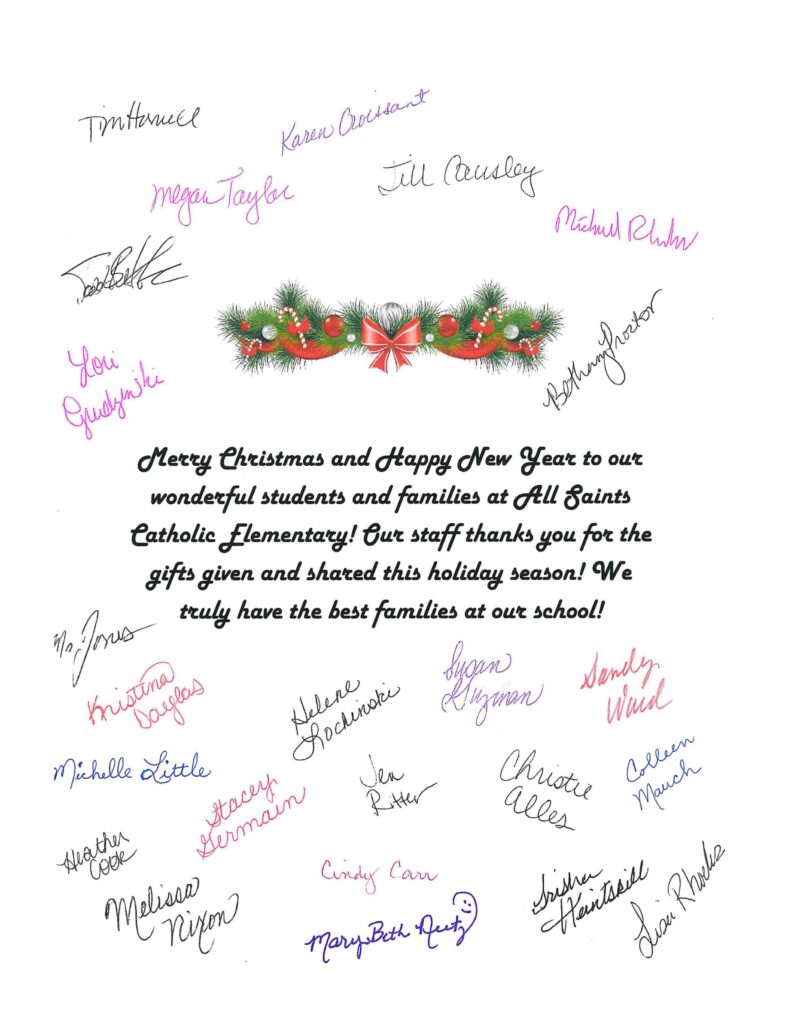 Karen Croissant
Megan Taylor
Jill Causley
Michael
Lori
Bethany Proctor
Merry Christmas and Happy New Year to our
wonderful students and families at All Saints
Catholic Elementary! Our staff thanks you for the
gifts given and shared this holiday season! We
truly have the best families at our school!
Jones
Kristina
Douglas
Helene
Lochinski
Susan
Guzman
Sandy
Ward
Michelle Little
Stacey
Germain
Jen
Ritter
Christie
Alles
Colleen
Mauch
Heather
Cook
Melissa
Nixon
Cindy Carr
Mary Beth
Trisha
Heintskill
Lisa Rhodes